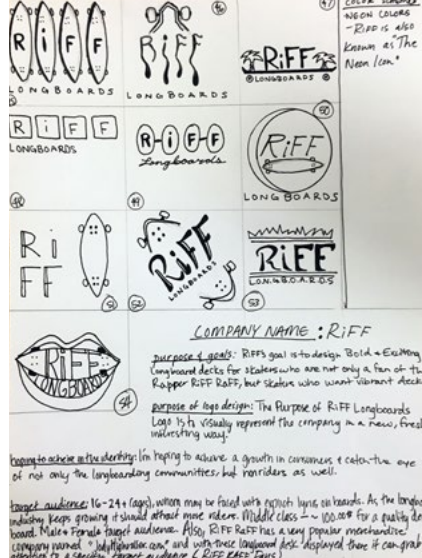 RiFF
LONGBOARDS
46
RiFF
LONGBOARDS
47
RiFF
LONGBOARDS
NEON COLORS
- RiFF is also
known as "The
Neon Icon"
RiFF
LONGBOARDS
48
R-i-F-F
Longboards
49
50
RiFF
LONGBOARDS
Ri
FF
51
RiFF
LONGBOARDS
52
RiFF
LONGBOARDS
53
RiFF
LONGBOARDS
54
COMPANY NAME: RiFF
purpose & goals: RiFF's goal is to design Bold & Exciting
Longboard decks for skaters who are not only a fan of
Rapper RiFF RAFF, but skaters who want vibrant
purpose of logo design: The Purpose of RiFF Longboards
Logo is to visually represent the company in a new,
interesting way.
hoping to achieve in the identity: I'm hoping to achieve a growth in consumers & catch the eye
of not only the longboarding communities, but nonriders as well.
target audience: 16-24+ (ages), whom may be faced with explicit lyrics on boards. As the
industry keeps growing it should attract more riders. Middle class - ~ 100.00+ for a quality
board. Male & Female target audience. Also, RiFF RAFF has a very popular merchandise
company named and with these longboard deck displayed there it can grab